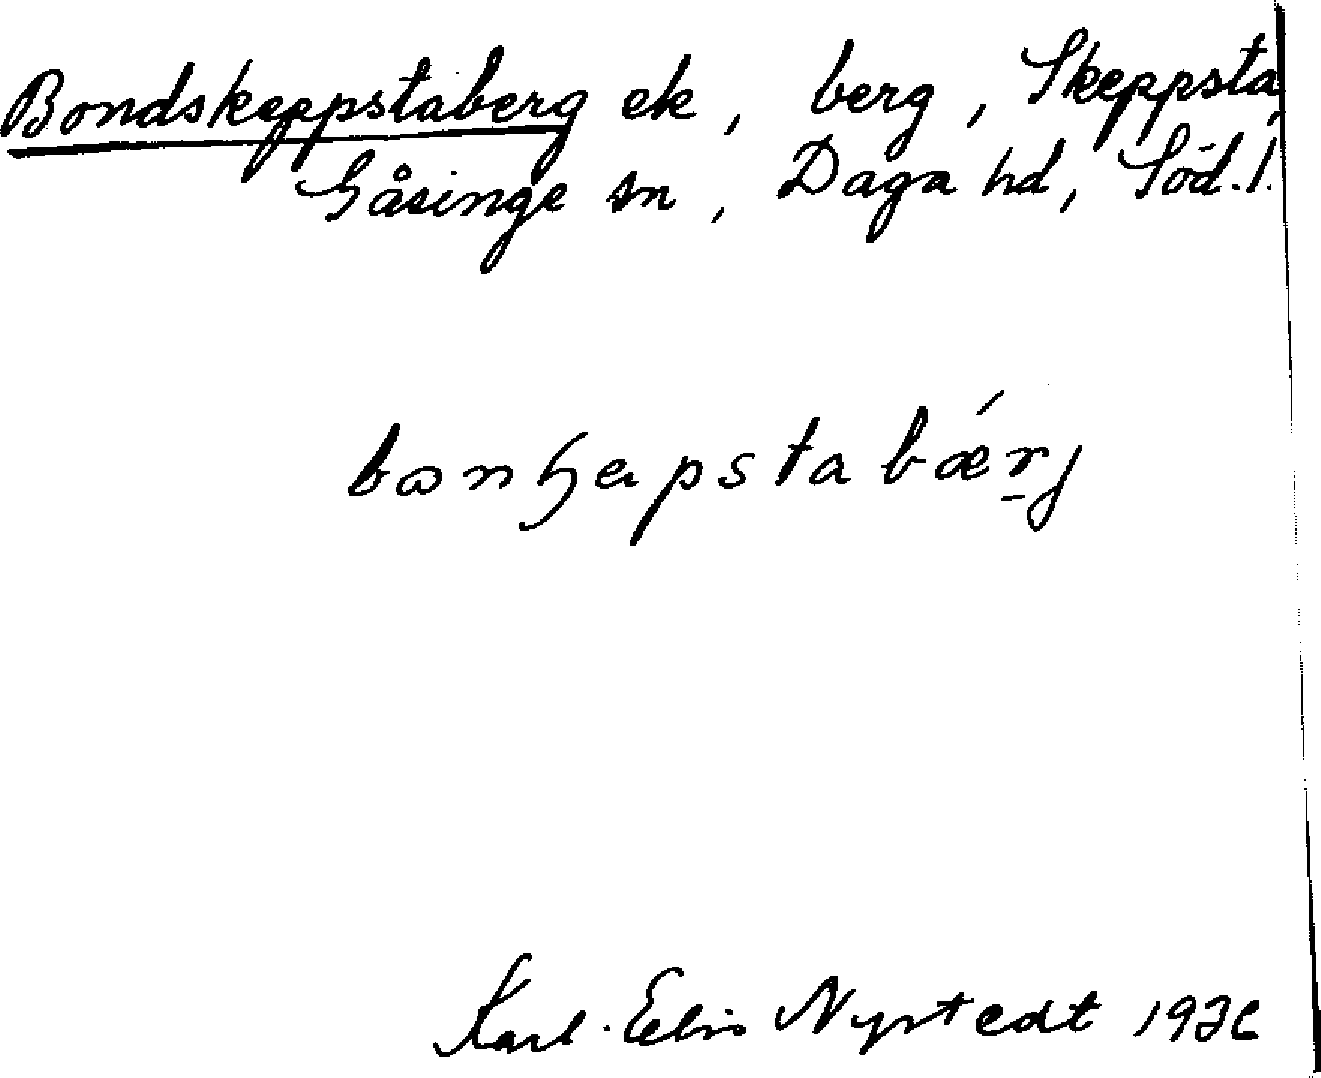 Bondskeppstaberg ek, berg, Skeppsta,
Gåsinge sn, Daga hd, Söd. l.
Karl-Elis Nystedt 1936